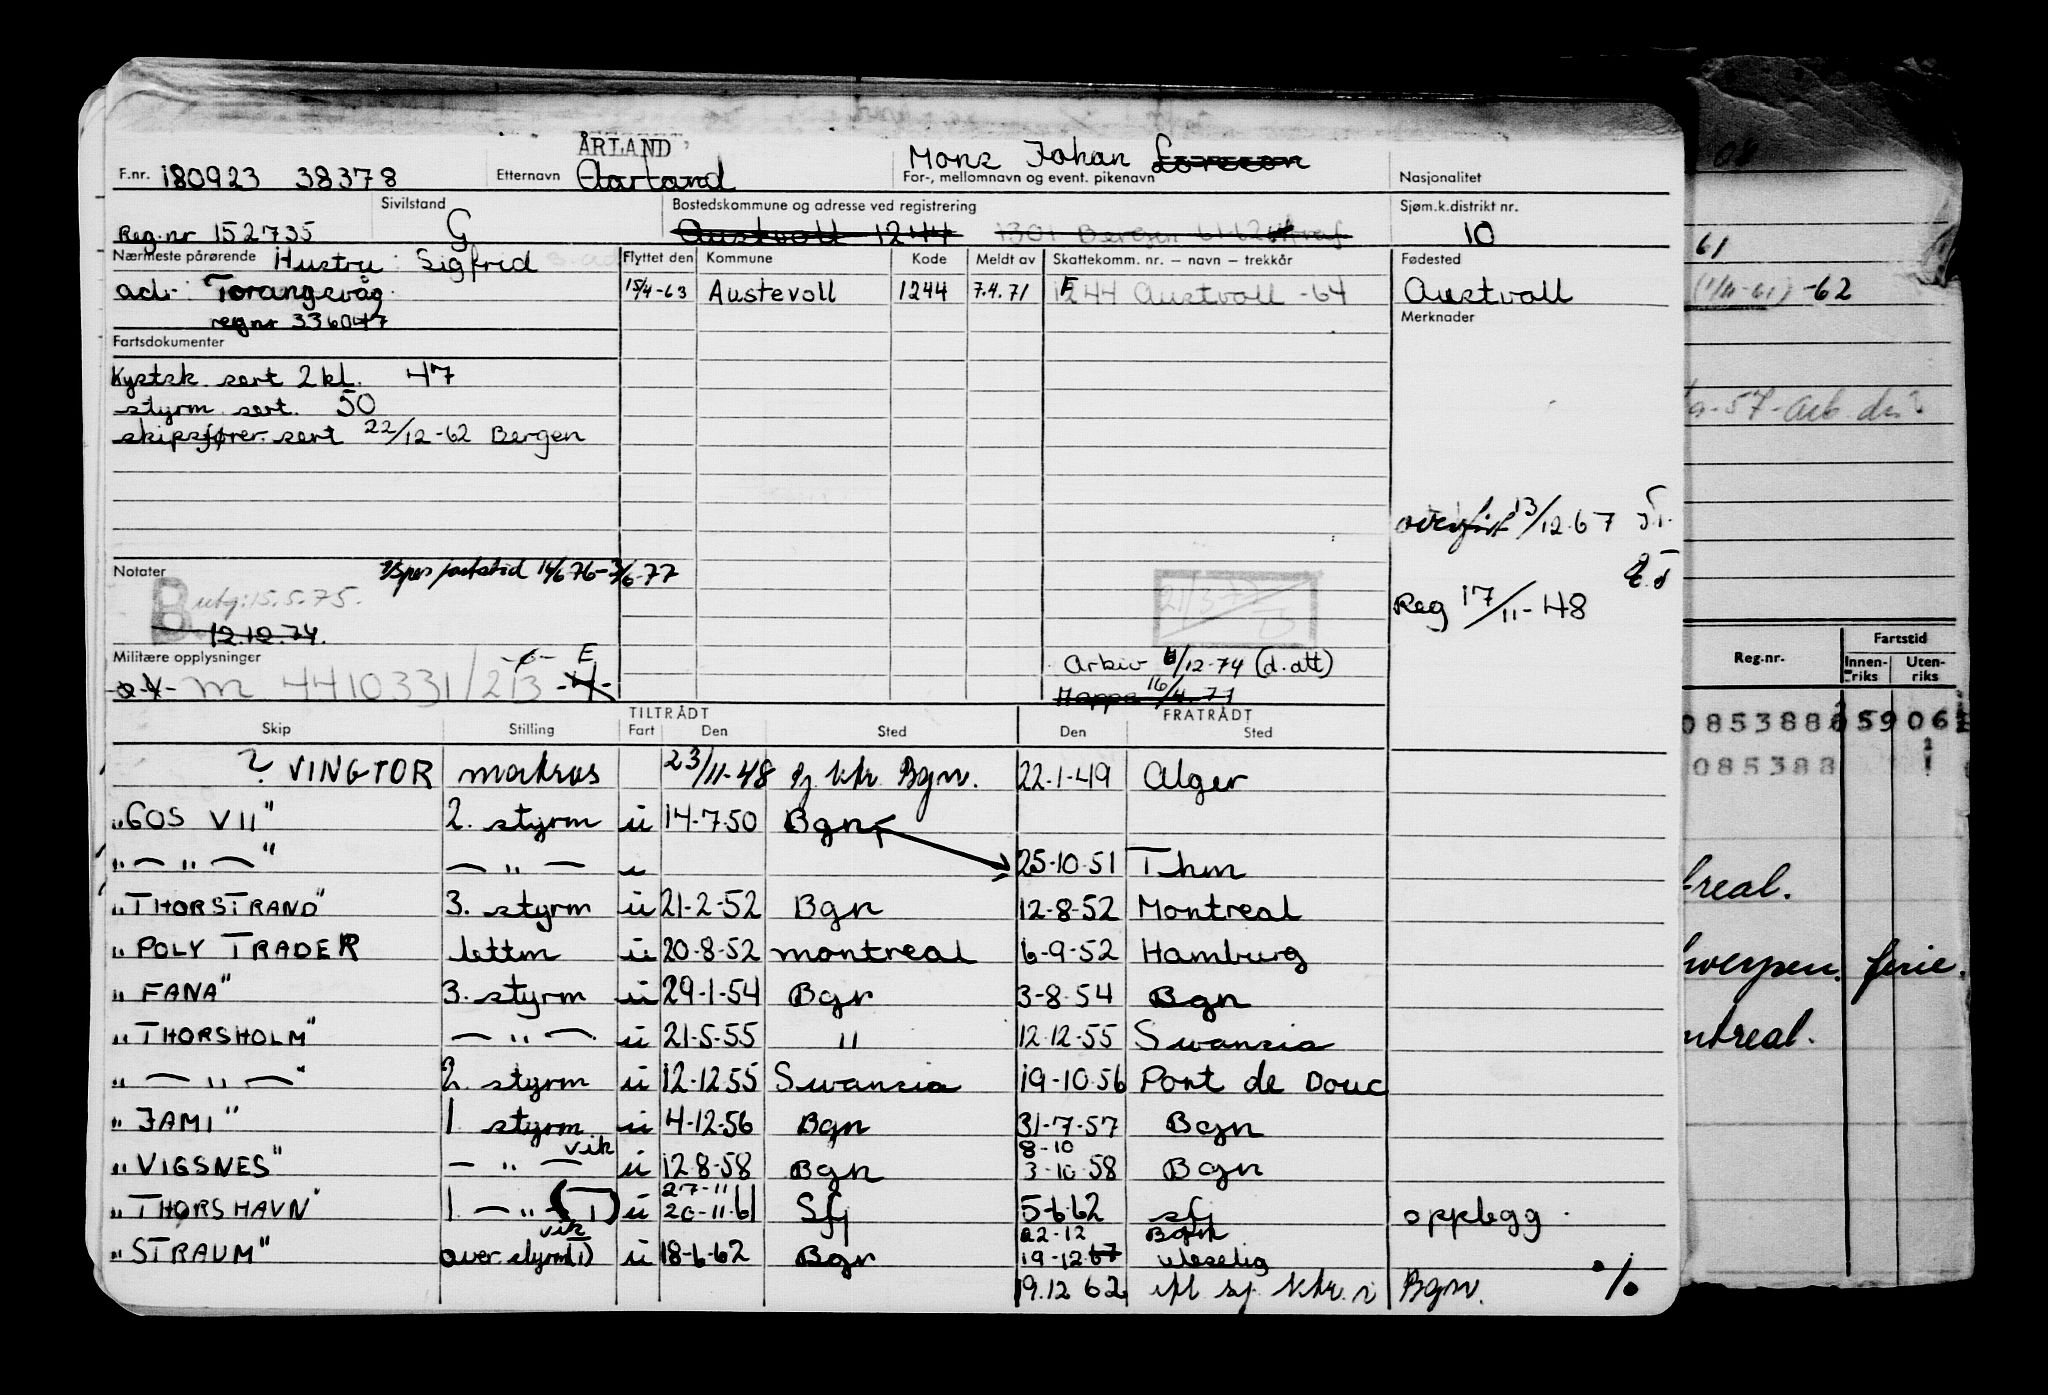 ÅRLAND
F.nr. 180923 38378 Etternavn Aarland Mons Johan
For-, mellomnavn og event. pikenavn Nasjonalitet
Sivilstand Bostedskommune og adresse ved registrering Sjøm.k.distrikt nr.
Reg.nr 152735 G Austvoll 1244 1301 Bergen 61-62 10
Nærmeste pårørende Hustru: Sigfrid Flyttet den Kommune Kode Meldt av Skattekomm. nr. – navn – trekkår Fødested
adr. Torangsvåg 15/4-63 Austevoll 1244 7.4.71 1244 Austvoll -64 Austvoll
reg nr 336047 Merknader
Fartsdokumenter
Kystsk. sert 2 kl. 47
styrm. sert. 50
skipsfører. sert 22/12-62 Bergen
overført 13/12.67
Notater fartstid 14/6 76-3/6-77
B utg: 15.5.75.
12.12.74.
Reg 17/11-48
Militære opplysninger E Arkiv 6/12-74 (d.att)
M 4410331/213 Mappa 16/4.77
TILTRÅDT FRATRÅDT
Skip Stilling Fart Den Sted Den Sted
? VINGTOR matros 23/11-48 sj. ktr. Bgn. 22-1-49 Alger
"GOS VII" 2. styrm u 14-7-50 Bgn
" — " — " — " — u 25-10-51 Thm
"THORSTRAND" 3. styrm u 21-2-52 Bgn 12-8-52 Montreal
" POLY TRADER lettm u 20-8-52 montreal 6-9-52 Hamburg
" FANA" 3. styrm u 29-1-54 Bgn 3-8-54 Bgn
"THORSHOLM" — " — u 21-5-55 " 12.12-55 Swansia
" — " — " 2. styrm u 12-12.55 Swansia 19-10-56 Pont de Douc
" JAMI" 1 styrm u 4-12-56 Bgn 31-7-57 Bgn
vik 8-10
"VIGSNES" — " — u 12-8-58 Bgn 3-10-58 Bgn
27-11
"THORSHAVN" 1. — " — (1) u 20-11-61 Sfj 5-6-62 sfj opplegg.
vik 22-12 Bgn
"STRAUM" over.styrm(1) u 18-6-62 Bgn 19-12-67 uleselig
19.12 62 ifl sj. ktr. i Bgn. %
08
61
(1/11-61) -62
-57-arb.
Reg.nr. Fartstid
Innenriks Utenriks
0853886 59 06
085388
treal.
werpen. ferie.
ntreal.